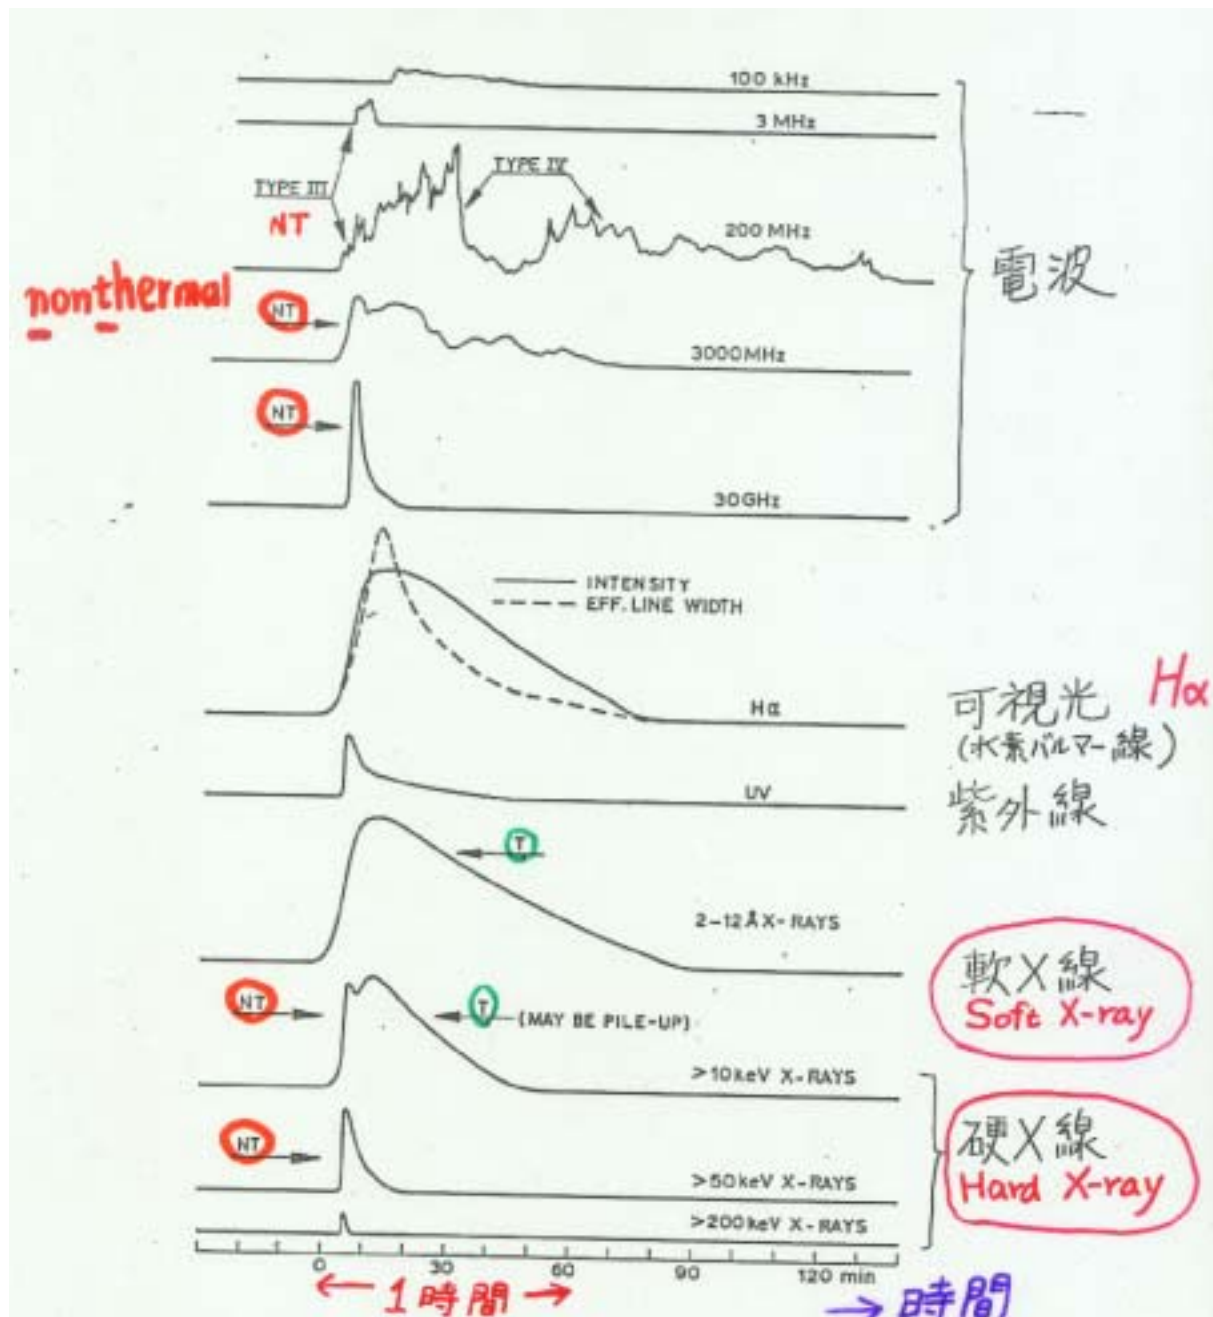 100 kHz
3 MHz
TYPE III
TYPE IV
NT
200 MHz
電波
nonthermal
NT
3000MHz
NT
30GHz
INTENSITY
EFF. LINE WIDTH
Hα
可視光 Hα
(水素バルマー線)
UV
紫外線
T
2-12Å X-RAYS
軟X線
Soft X-ray
NT
T
(MAY BE PILE-UP)
>10keV X-RAYS
NT
硬X線
Hard X-ray
>50keV X-RAYS
>200keV X-RAYS
0 30 60 90 120 min
← 1時間 →
→ 時間